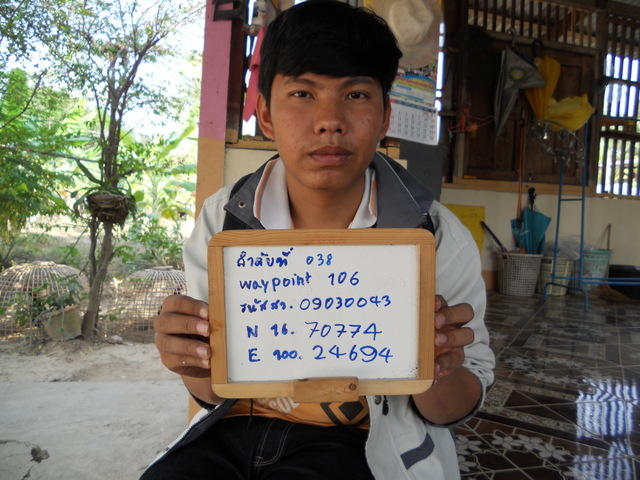 ลำดับที่ 038
waypoint 106
รหัสสว. 09030043
N 16. 70774
E 100. 24694